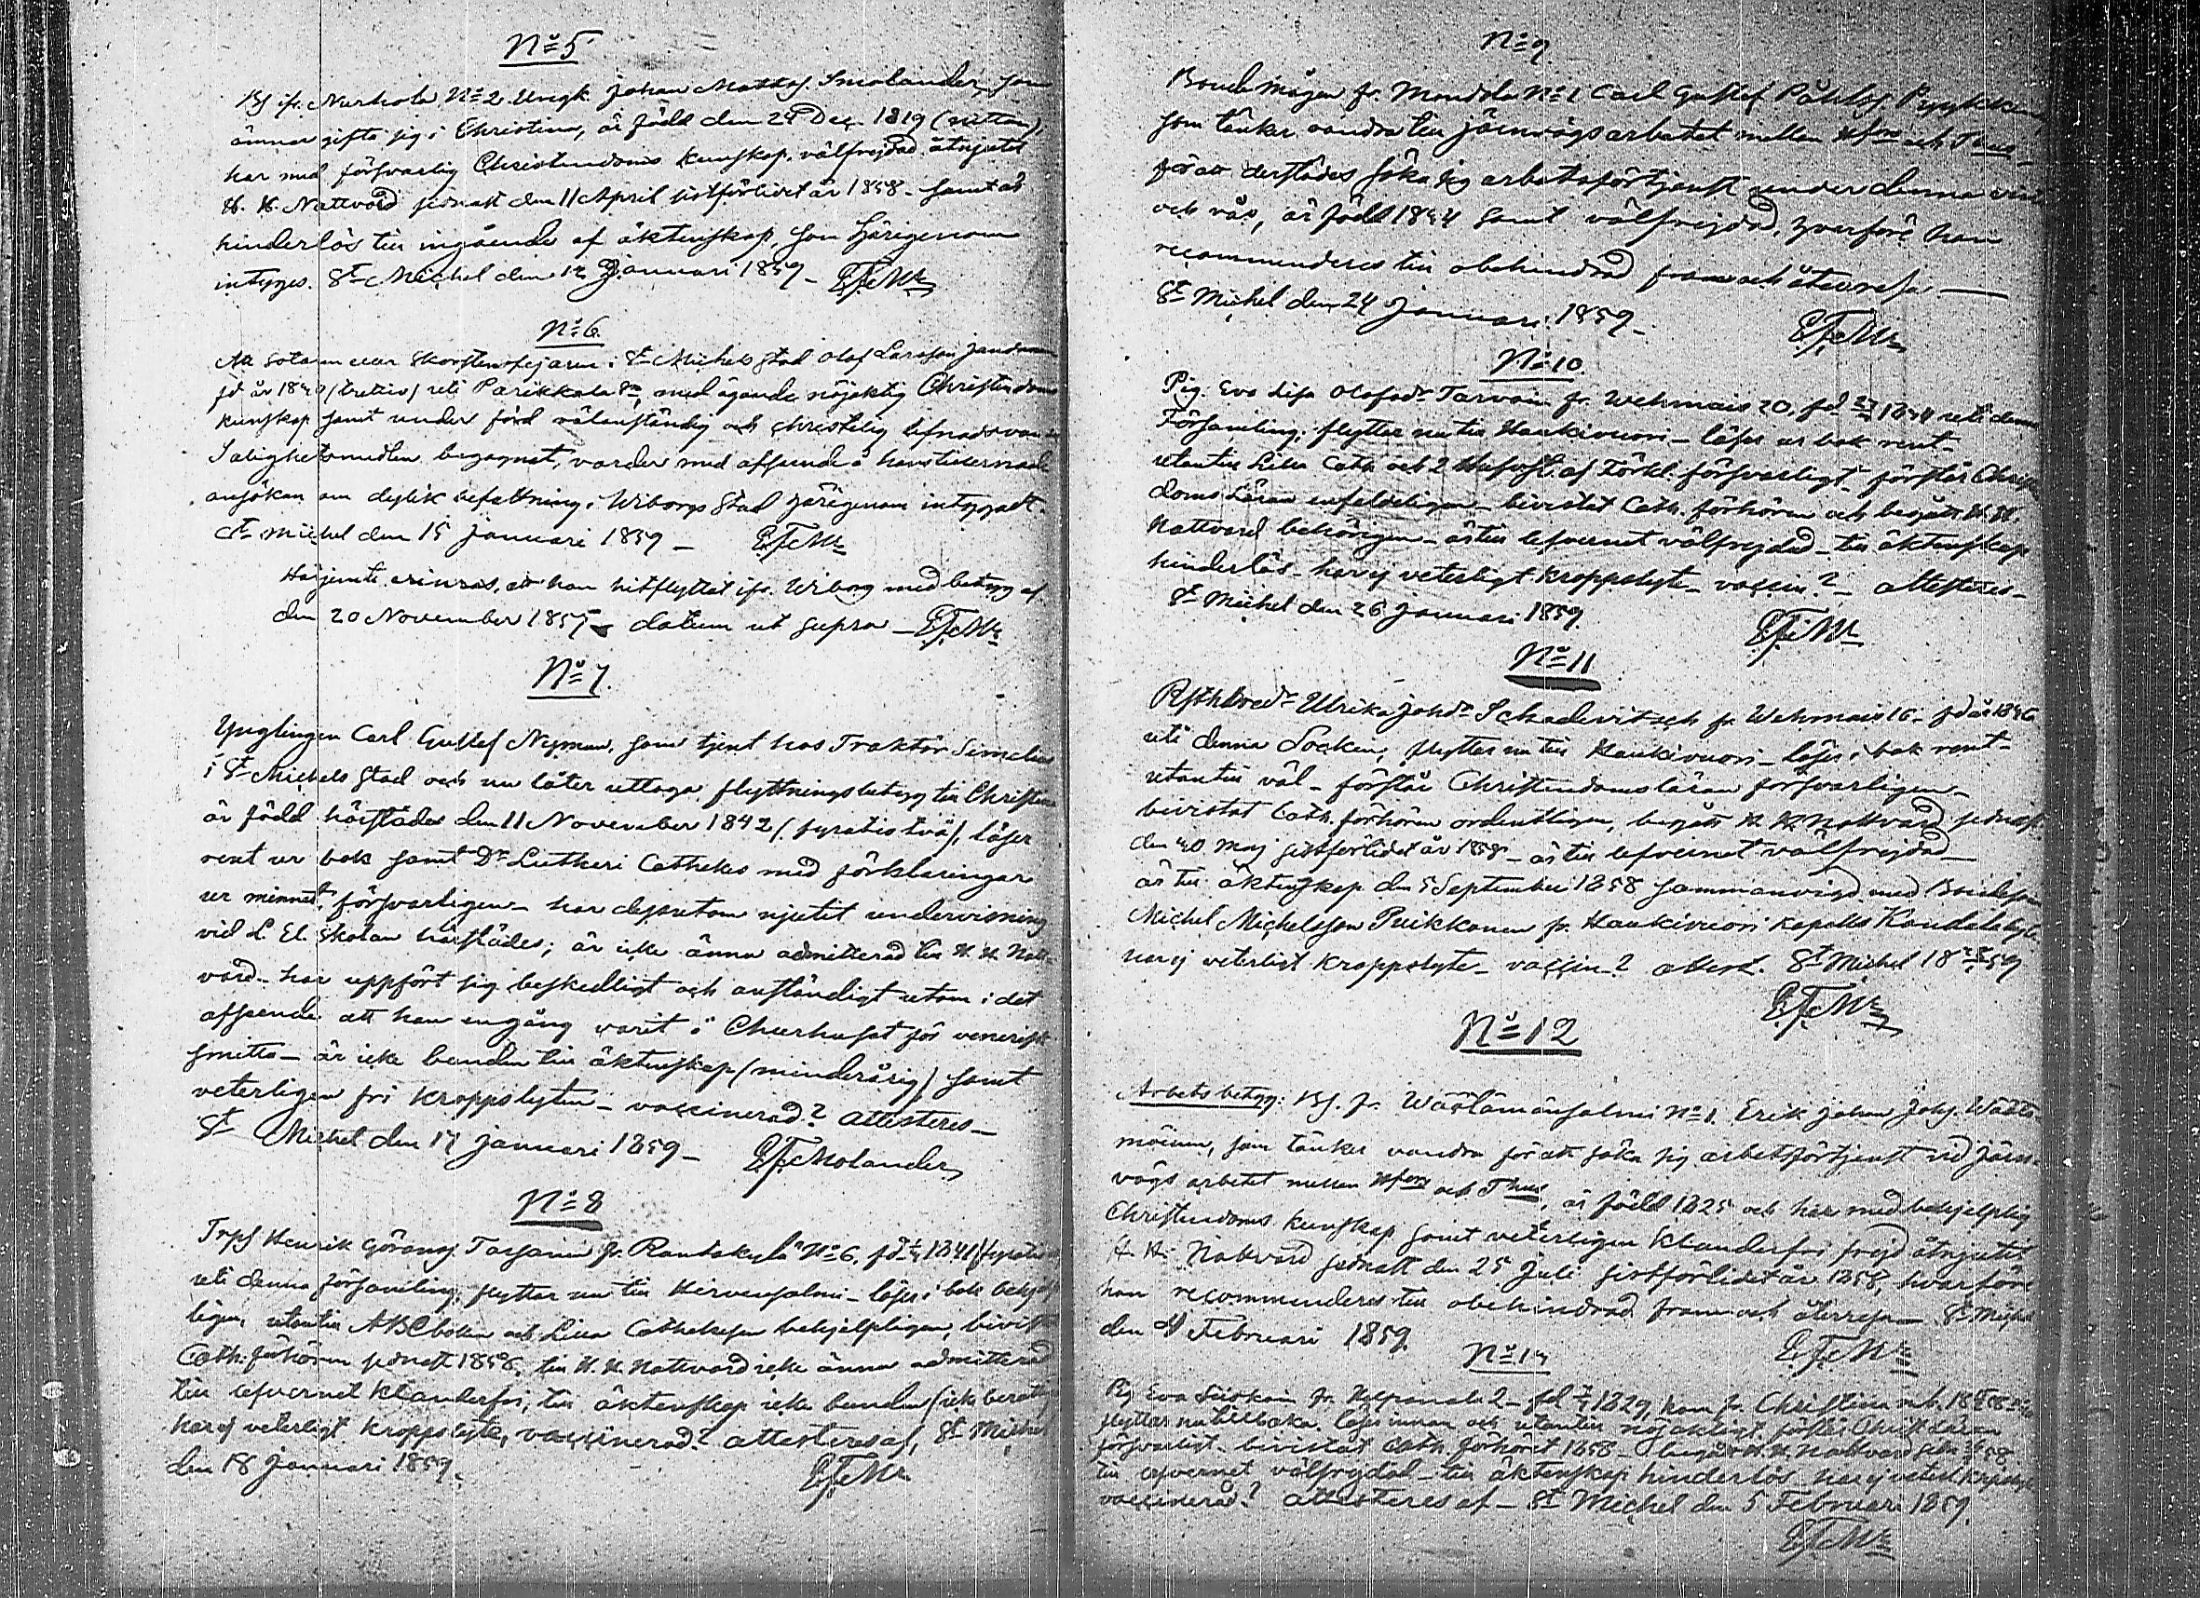 No 5
Bs ifr. Nurhola No 2 Ungk. Johan Mattsj. Smolander, som
ämnar gifta sig i Christina, är född den 24 Dec. 1819 (nitton),
har med försvarlig Christendoms kunskap, välfrejdad åtnjutit
H. H. Nattvard sednast den 11 April sistförlidet år 1858 - samt är
hinderlös till ingående af äktenskap, som härigenom
intyges. St Michel den 12 Januari 1859 - EFcMr
No 6.
Att Sotaren eller Skorstensfejaren i St Michels stad Olof Larsson
fd år 1840 uti Parikkala Sn, med ägande nöjaktig Christendoms
kunskap samt under förd välanständig och christelig lefnadsvandel
Salighetsmedlen begagnat, varder med afseende å hans tillernade
ansökan om dylik befattning i Wiborgs Stad härigenom intygadt.
St Michel den 15 Januari 1859 - EFcMr
Härjemte erinras, att han hitflyttat ifr. Wiborg med betyg af
den 20 November 1857 - datum ut supra - EFcMr
No 7.
Ynglingen Carl Gustaf Nyman, som tjent hos Traktör Simelius
i St Michels stad och nu låter uttaga flyttningsbetyg till Christina
är född härstädes den 11 November 1842 (fyratiotvå), läser
rent ur bok samt Dr Lutheri Cathekes med förklaringar
ur minnet försvarligen - har dessutom njutit undervisning
vid L. El. Skolan härstädes; är icke ännu admitterad till H. H. Natt-
vard - har uppfört sig beskedligt och anständigt utom i det
afseende att han engång varit å Churhuset för venerisk
smitta - är icke bunden till äktenskap (minderårig) samt
veterligen fri kroppslyten - vaccinerad? attesteres -
St Michel den 17 Januari 1859 - EFcMolander
No 8
Trps Henrik Göransj. Tarjanin fr. Rantakylä No 6, fd 1841
uti denna församling, flyttar nu till Hirvensalmi - läser i bok behjelp-
ligen, utantill ABCboken och Lilla Cathekesen behjelpligen, bivist.
Cath. förhören sednast 1858, till H. H. Nattvard icke ännu admitterad
till lefvernet klanderfri, till äktenskap icke bunden
har ej veterligt kroppslyte, vaccinerad? attesteres af, St Michel
den 18 Januari 1859. EFcMr
No 9
Bonde Mågen fr. Mondola No 1 Carl Gustaf Påhlsj. Pyykkönen
som tänker vandra till järnvägsarbetet mellan Hfors och Thus
för att derstädes söka sig arbetsförtjenst under denna vinter
och vår, är född 1824 samt välfrejdad, hvarföre han
recommenderes till obehindrad fram och återresa. —
St Michel den 24 Januari 1859 - EFcMr
No 10.
Pig. Eva Lisa Olofsdr Tarvain fr. Wehmais 20, fd 1834 uti denna
Församling, flyttar nu till Haukivuori - läser ur bok rent -
utantill Lilla Cath. och 2 Hufvst. af Förkl. försvarligt - förstår Christen-
doms Läran enfaldeligen - bivistat Cath. förhören och begått H. H.
Nattvard behörigen - är till lefvernet välfrejdad - till äktenskap
hinderlös - har ej veterligt kroppslyte - vaccin.? - attesteres -
St Michel den 26 Januari 1859. EFcMr
No 11
Ulrika Johdr Schadevitsch fr. Wehmais 16 - fd år 1836
uti denna Socken, flyttar nu till Haukivuori - läser i bok rent -
utantill väl - förstår Christendomsläran försvarligen -
bivistat Cath. förhören ordentligen, begått H. H. Nattvard sednast
den 30 Maj sistförlidet år 1858 - är till lefvernet välfrejdad -
är till äktenskap den 5 September 1858 sammanvigd med Bondeson
Michel Michelsson Puikkonen fr. Haukivuori kapells Kandala by -
har ej veterligt kroppslyte - vaccin.? attest. St Michel 18 59
EFcMr
No 12
Arbetsbetyg: Bs. fr. Wäälämänsalmi No 1. Erik Johan Johsj. Wäälä-
mäinen, som tänker vandra för att söka sig arbetsförtjenst vid Järn-
vägs arbetet mellan Hfors och Thus, är född 1825 och har med behjelplig
Christendoms kunskap samt veterligen klanderfri frejd åtnjutit
H. H. Nattvard sednast den 25 Juli sistförlidet år 1858, hvarföre
han recommenderes till obehindrad fram och återresa - St Michel
den 4 Februari 1859. EFcMr
No 14
Pig Eva fr. 2 - fd 1829, kom fr. Christina m.b. 1858
flyttar nu tillbaka, läser innan och utantill nöjaktigt, förstår Christ. Läran
försvarligt - bivistat Cath. förhöret 1858 - begått H. H. Nattvard sedn. 58
till lefvernet välfrejdad - till äktenskap hinderlös, har ej veterl. kroppslyte
vaccinerad? attesteres af - St Michel den 5 Februari 1859.
EFcMr